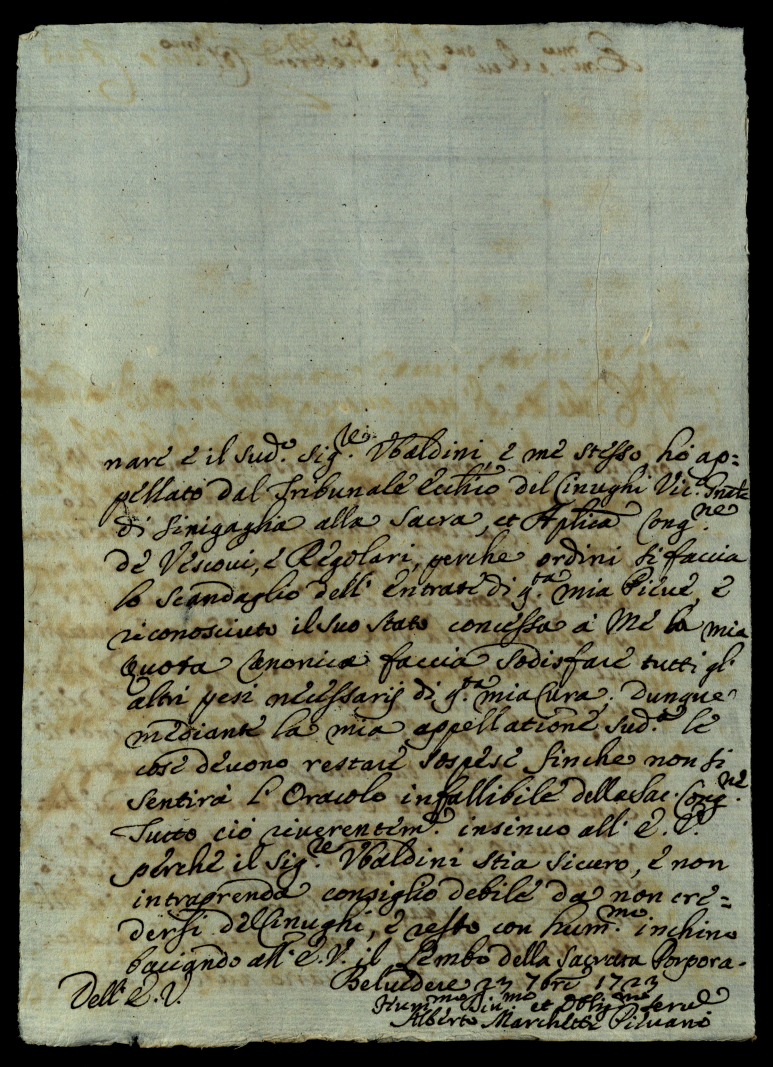 nare e il sud.o Sig.re Vbaldini, e me stesso, ho ap=
pellato dal Tribunale Ecclico del Cinughi Vic.o Gnale
di Sinigaglia alla Sacra, et Aplica Cong.ne
de Vescoui, e Regolari, perche ordini si faccia
lo scandaglio dell' entrate di q.ta mia Pieue, e
riconosciuto il suo stato concessa a Me la mia
quota Canonica faccia sodisfare tutti gl'
altri pesi necessarij di q.ta mia Cura; Dunque
mediante la mia appellatione sud.a le
cose deuono restare sospese finche non si
sentirà l'Oracolo infallibile della Sac. Cong.ne
Tutto ciò riuerentem.te insinuo all' E. V.
perche il Sig.re Vbaldini stia sicuro, e non
intraprenda consiglio debile da non cre=
dersi del Cinughi, e resto con hum.mo inchino
baciando all' E. V. il Lembo della Sacrata Porpora.
Beluedere 23 7bre 1723
Dell' E. V.
Hum.mo Diu.mo et Oblig.mo Seru.e
Alberto Marchetti Pieuano